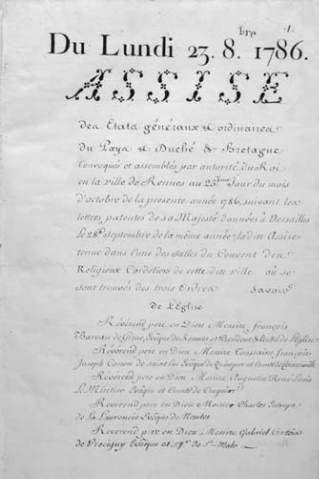 Du Lundi 23. 8.bre 1786.
ASSISE
Des Etats généraux & ordinaires
du Pays & Duché de Bretagne
Convoqués et assemblés par autorité du Roi
en la ville de Rennes au 23eme Jour du mois
d'octobre de la presente année 1786, suivant les
lettres patentes de sa Majesté données à Versailles
le septembre de la même année, la dite Assise
tenue dans l'une des salles du Couvent des
Religieux Cordeliers de cette dite ville où se
sont trouvés des trois Ordres Savoir
De l'Eglise
Révérend pere en Dieu Messire françois
Bareau de Girac, Evêque de Rennes et President de l'Eglise
Révérend pere en Dieu Messire Toussaint françois
Joseph Conen de Saint Luc Evêque de Quimper et Comte de Cornouaille
Révérend pere en Dieu Messire Augustin René Louis
Le Mintier Evêque et Comte de Treguier
Reverend pere en Dieu Messire Charles
de la Laurencie Evêque de Nantes
Reverend pere en Dieu Messire Gabriel Cortois
de Pressigny Evêque et Sgr. de St. Malo